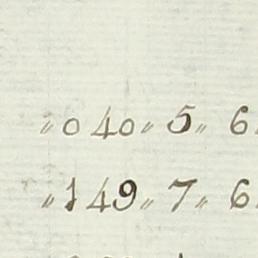 〃040〃5〃6
〃149〃7〃6